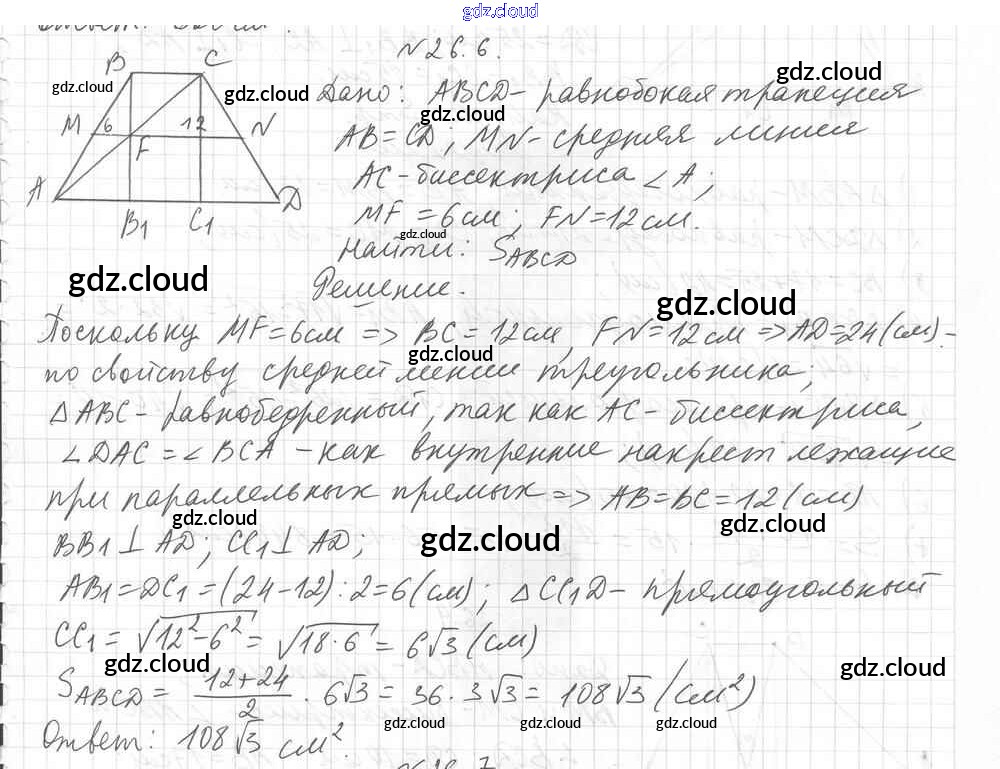 gdz.cloud
Ответ:
N26.6.
B C
gdz.cloud
gdz.cloud
gdz.cloud
Дано: ABCD - равнобокая трапеция
gdz.cloud
M 6 12 N
F
AB = CD; MN - средняя линия
A D
AC - биссектриса ∠A;
B1 C1
MF = 6см; FN = 12см.
gdz.cloud
Найти: SABCD
gdz.cloud
Решение.
gdz.cloud
Поскольку MF = 6см => BC = 12см, FN = 12см => AD = 24(см) -
gdz.cloud
по свойству средней линии треугольника;
△ABC - равнобедренный, так как AC - биссектриса,
gdz.cloud
∠DAC = ∠BCA - как внутренние накрест лежащие
при параллельных прямых => AB = BC = 12(см)
gdz.cloud
gdz.cloud
gdz.cloud
BB1 ⊥ AD; CC1 ⊥ AD;
AB1 = DC1 = (24-12) : 2 = 6(см); △CC1D - прямоугольный
CC1 = √12²-6² = √18·6 = 6√3 (см)
gdz.cloud
gdz.cloud
SABCD = 12+24/2 · 6√3 = 36 · 3√3 = 108√3 (см²)
gdz.cloud
gdz.cloud
gdz.cloud
Ответ: 108√3 см².